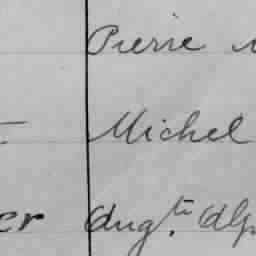 Pierre
Michel
er Aug.te Alp